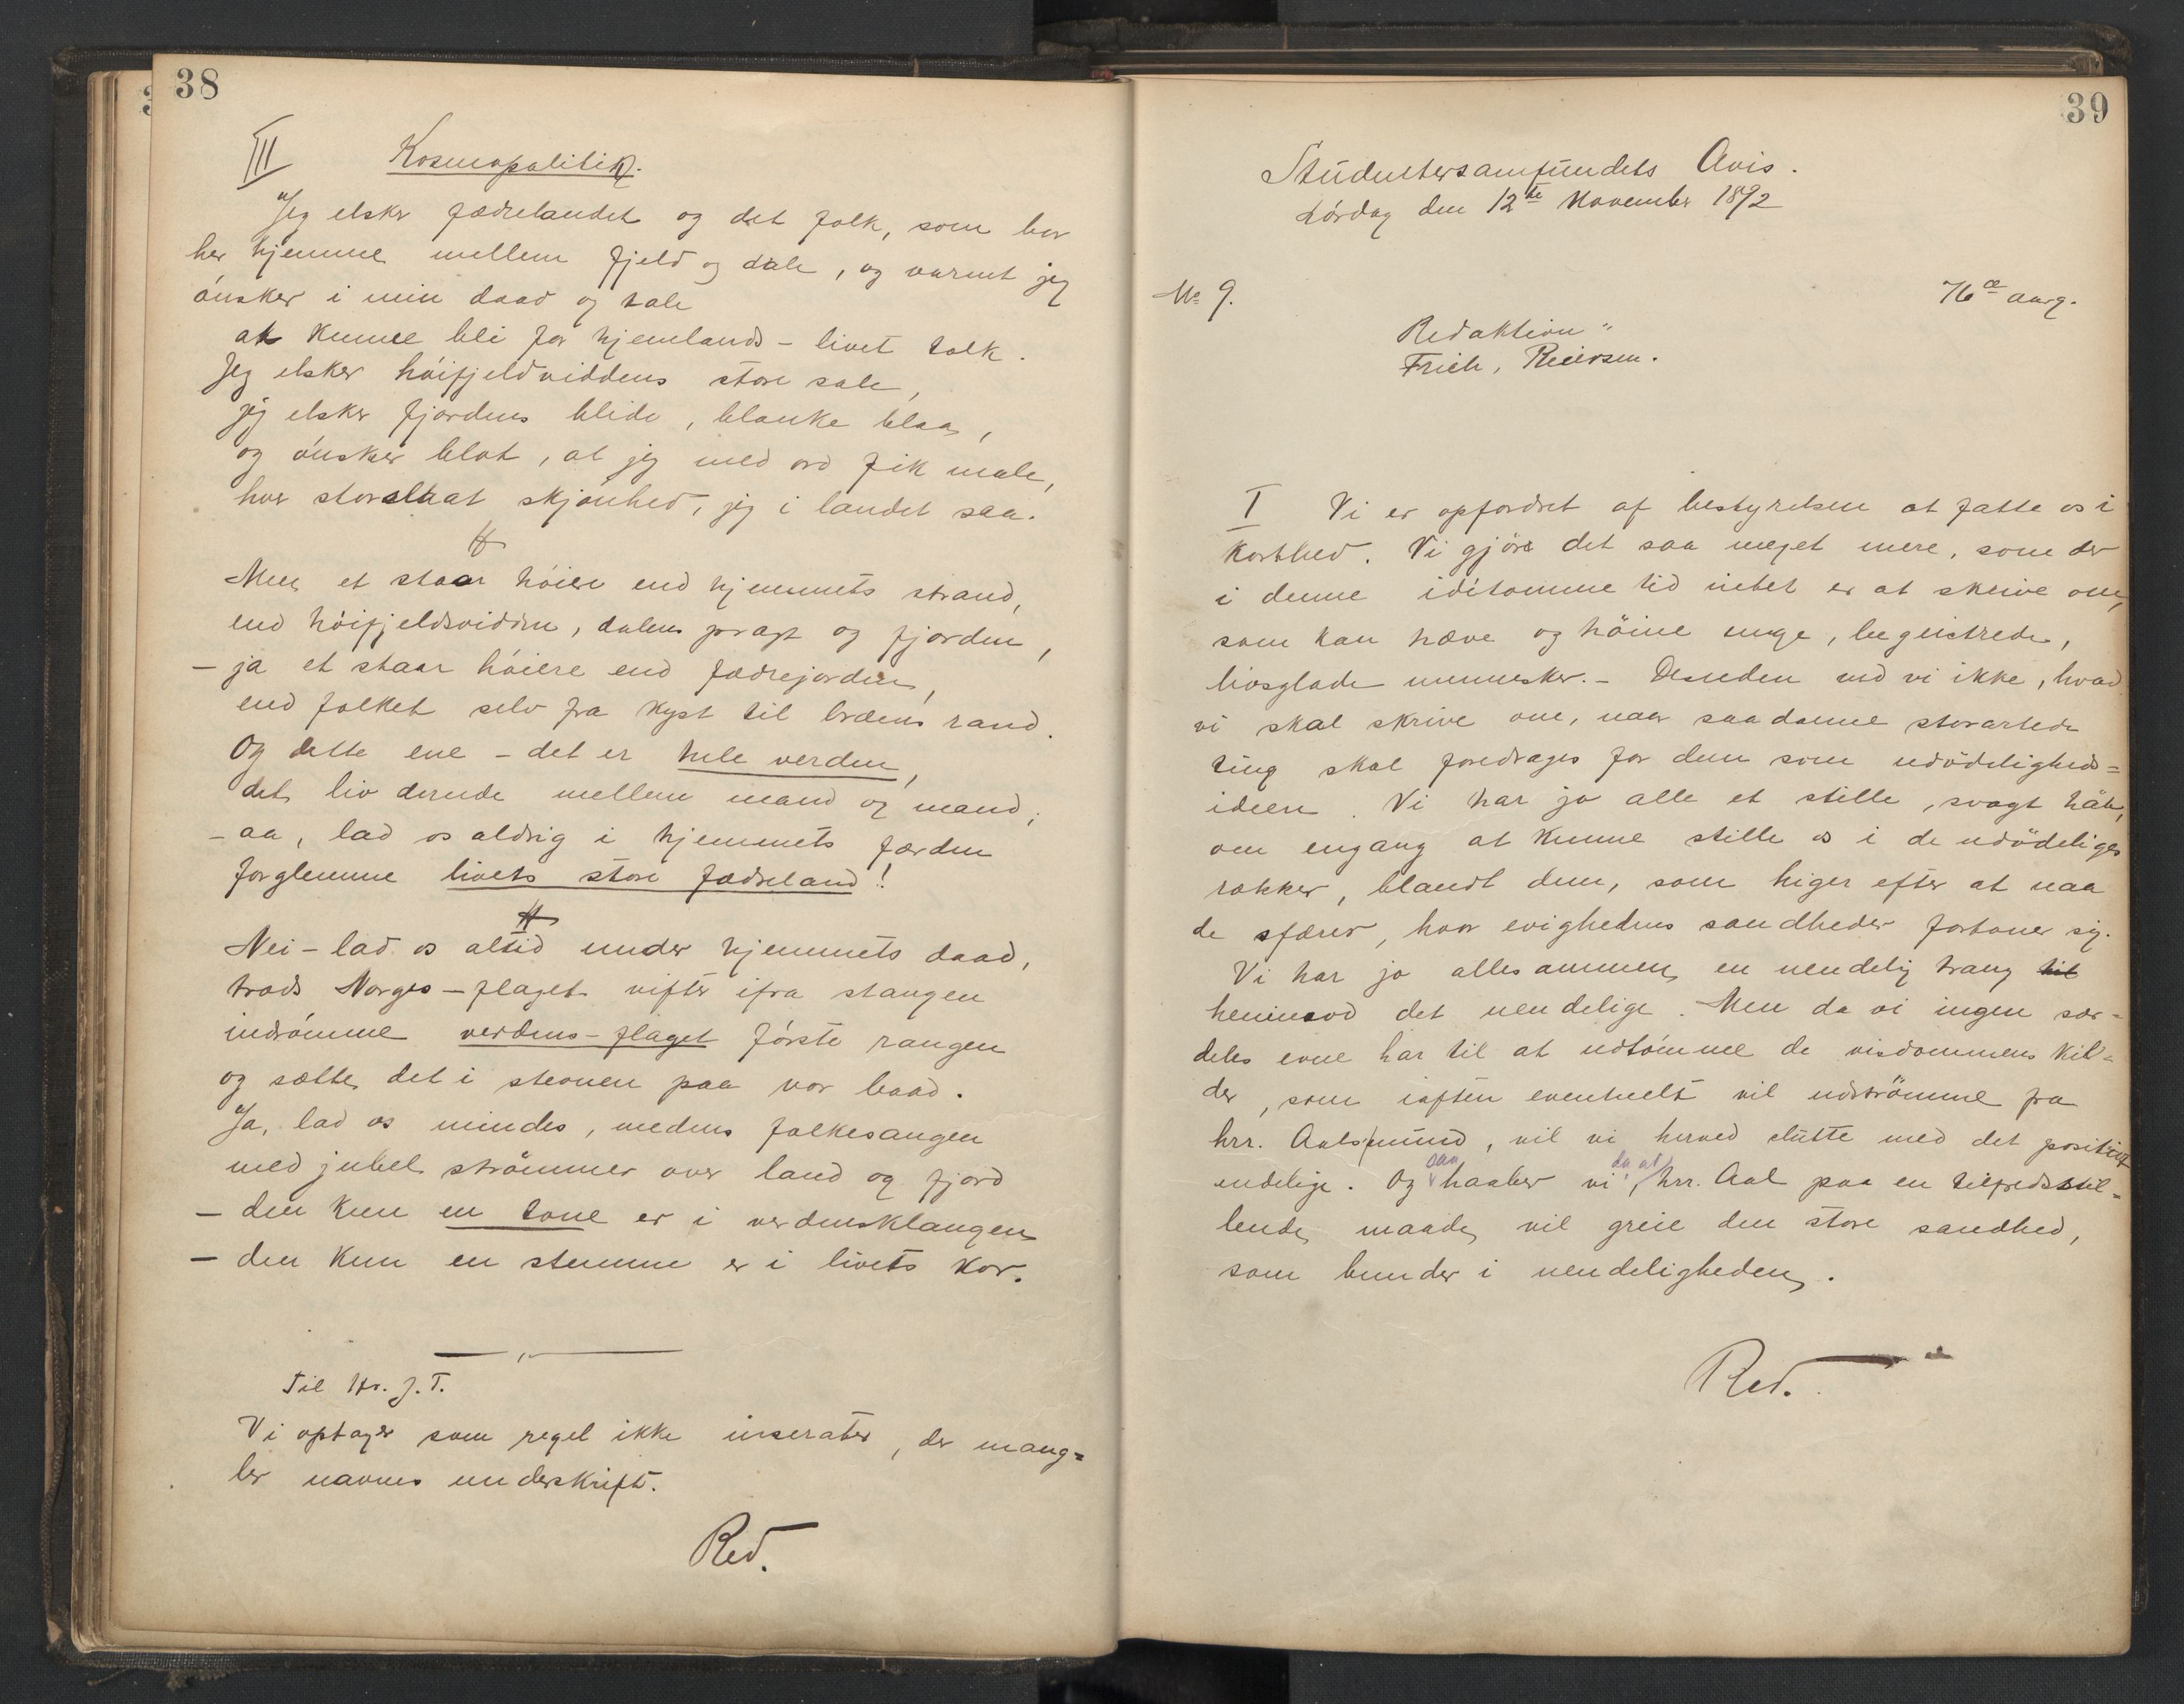 38
III Kosmopolitik.
Jeg elsker fædrelandet og det folk, som bor
her hjemme mellem fjeld og dale, og varmt jeg
ønsker i min daad og tale
at kunne bli for hjemlands-livet tolk.
Jeg elsker höifjeldviddens store sale,
jeg elsker fjordens blide, blanke blaa,
og ønsker blot, at jeg med ord fik male,
hvor storslaat skjønhed, jeg i landet saa.
Men et staar høiere end hjemmets strand,
end höifjeldsvidden, dalens pragt og fjorden,
– ja et staar høiere end fædrejorden,
end folket selv fra kyst til bræens rand.
Og dette ene – det er hele verden,
det liv derude mellem mand og mand;
– aa, lad os aldrig i hjemmets færden
forglemme livets store fædreland!
Nei – lad os altid under hjemmets daad,
trods Norges-flaget vifter ifra stangen
indrømme verdens-flaget første rangen
og sætte det i stevnen paa vor baad.
Ja, lad os mindes, medens folkesangen
med jubel strømmer over land og fjord
– den kun en tone er i verdensklangen
– den kun en stemme er i livets kor.
Til Hr. J. T.
Vi optager som regel ikke inserater, der mang=
ler navnes underskrift.
Red.
39
Studentersamfundets Avis.
Lórdag den 12te November 1892
No 9. 76de aarg.
Redaktion"
Frich, Reiersen.
I Vi er opfordret af bestyrelsen at fatte os i
korthed. Vi gjör det saa meget mere, som der
i denne idétomme tid intet er at skrive om,
som kan hæve og höine unge, begeistrede,
livsglade mennesker. – Desuden ved vi ikke, hvad
vi skal skrive om, naar saadanne storartede
ting skal foredrages for dem som udödeligheds=
ideen. Vi har jo alle et stille, svagt håb,
om engang at kunne stille os i de udödeliges
rækker, blandt dem, som higer efter at naa
de sfærer, hvor evighedens sandheder fortoner sig.
Vi har jo allesammen en uendelig trang til
henimod det uendelige. Men da vi ingen sær=
deles evne har til at udtømme de visdommens kil=
der, som iaften eventuelt vil udströmme fra
hrr. Aals mund, vil vi herved slutte med det positivt
endelige. Og saa haaber vi da at, hrr. Aal paa en tilfredsstil=
lende maade vil greie den store sandhed,
som bunder i uendeligheden.
Red.